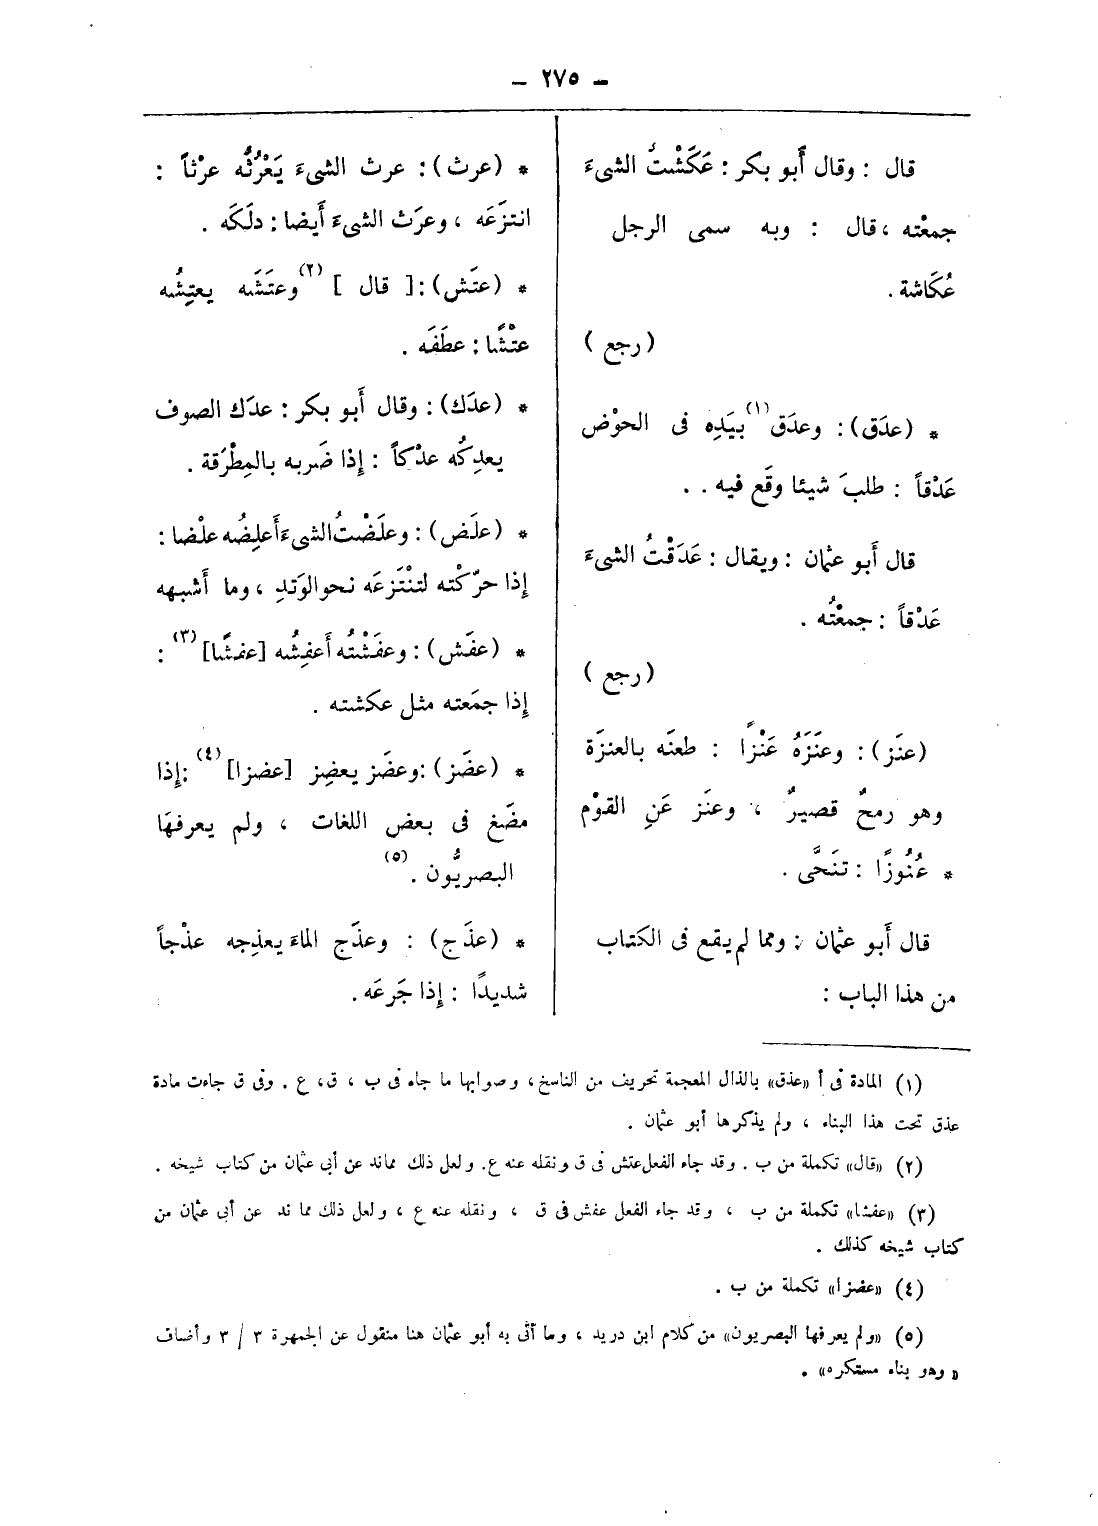 – ٢٧٥ –
قال : وقال أَبو بكر : عَكَشْتُ الشىءَ
جمعْته ، قال : وبه سمى الرجل
عُكَاشة .
( رجع )
* (عدَق) : وعدَق(١) بيَدِه فى الحوْض
عَدْقاً : طلبَ شيئا وقَع فيه . .
قال أَبو عثمان : ويقال : عَدَقْتُ الشىءَ
عَدْقاً : جمعْتُه .
( رجع )
(عنَز) : وعنَزَهُ عَنْزًا : طعنَه بالعنزَة
وهو رمحٌ قصيرٌ ، وعنَز عَنِ القوْم
* عُنُوزًا : تنَحَّى .
قال أَبو عثمان : ومما لم يقع فى الكتاب
من هذا الباب :
* (عرث) : عرث الشىءَ يَعْرُثُه عرْثاً :
انتزَعَه ، وعرَث الشىءَ أَيضا : دلَكَه .
* (عتَش) : [ قال ] (٢) وعتَشَه يعتِشُه
عتْشًا : عطَفَه .
* (عدَك) : وقال أَبو بكر : عدَك الصوف
يعدِكُه عدْكاً : إِذا ضَربه بالمِطْرَقة .
* (علَض) : وعلَضْتُ الشىءَ أَعلِضُه علْضا :
إِذا حرّكْته لتنْتَزعَه نحو الوَتدِ ، وما أَشبهه
* (عفَش) : وعفَشْتُه أَعفِشُه [عفشًا] (٣) :
إِذا جمَعته مثل عكشته .
* (عضَز) : وعضَز يعضِز [عضزا] (٤) : إِذا
مضَغ فى بعض اللغات ، ولم يعرفهَا
البصريُّون . (٥)
* (عذَج) : وعذَج الماءَ يعذجِه عذْجاً
شديدًا : إِذا جَرعَه .
(١) المادة فى أ «عذق» بالذال المعجمة تحريف من الناسخ ، وصوابها ما جاء فى ب ، ق ، ع . وفى ق جاءت مادة
عذق تحت هذا البناء ، ولم يذكرها أبو عثمان .
(٢) «قال» تكملة من ب . وقد جاء الفعل عتش فى ق ونقله عنه ع . ولعل ذلك مما ند عن أبى عثمان من كتاب شيخه .
(٣) «عفشا» تكملة من ب ، وقد جاء الفعل عفش فى ق ، ونقله عنه ع ، ولعل ذلك مما ند عن أبى عثمان من
كتاب شيخه كذلك .
(٤) «عضزا» تكملة من ب .
(٥) «ولم يعرفها البصريون» من كلام ابن دريد ، وما أتى به أبو عثمان هنا منقول عن الجمهرة ٣ / ٣ وأضاف
« وهو بناء مستكره» .